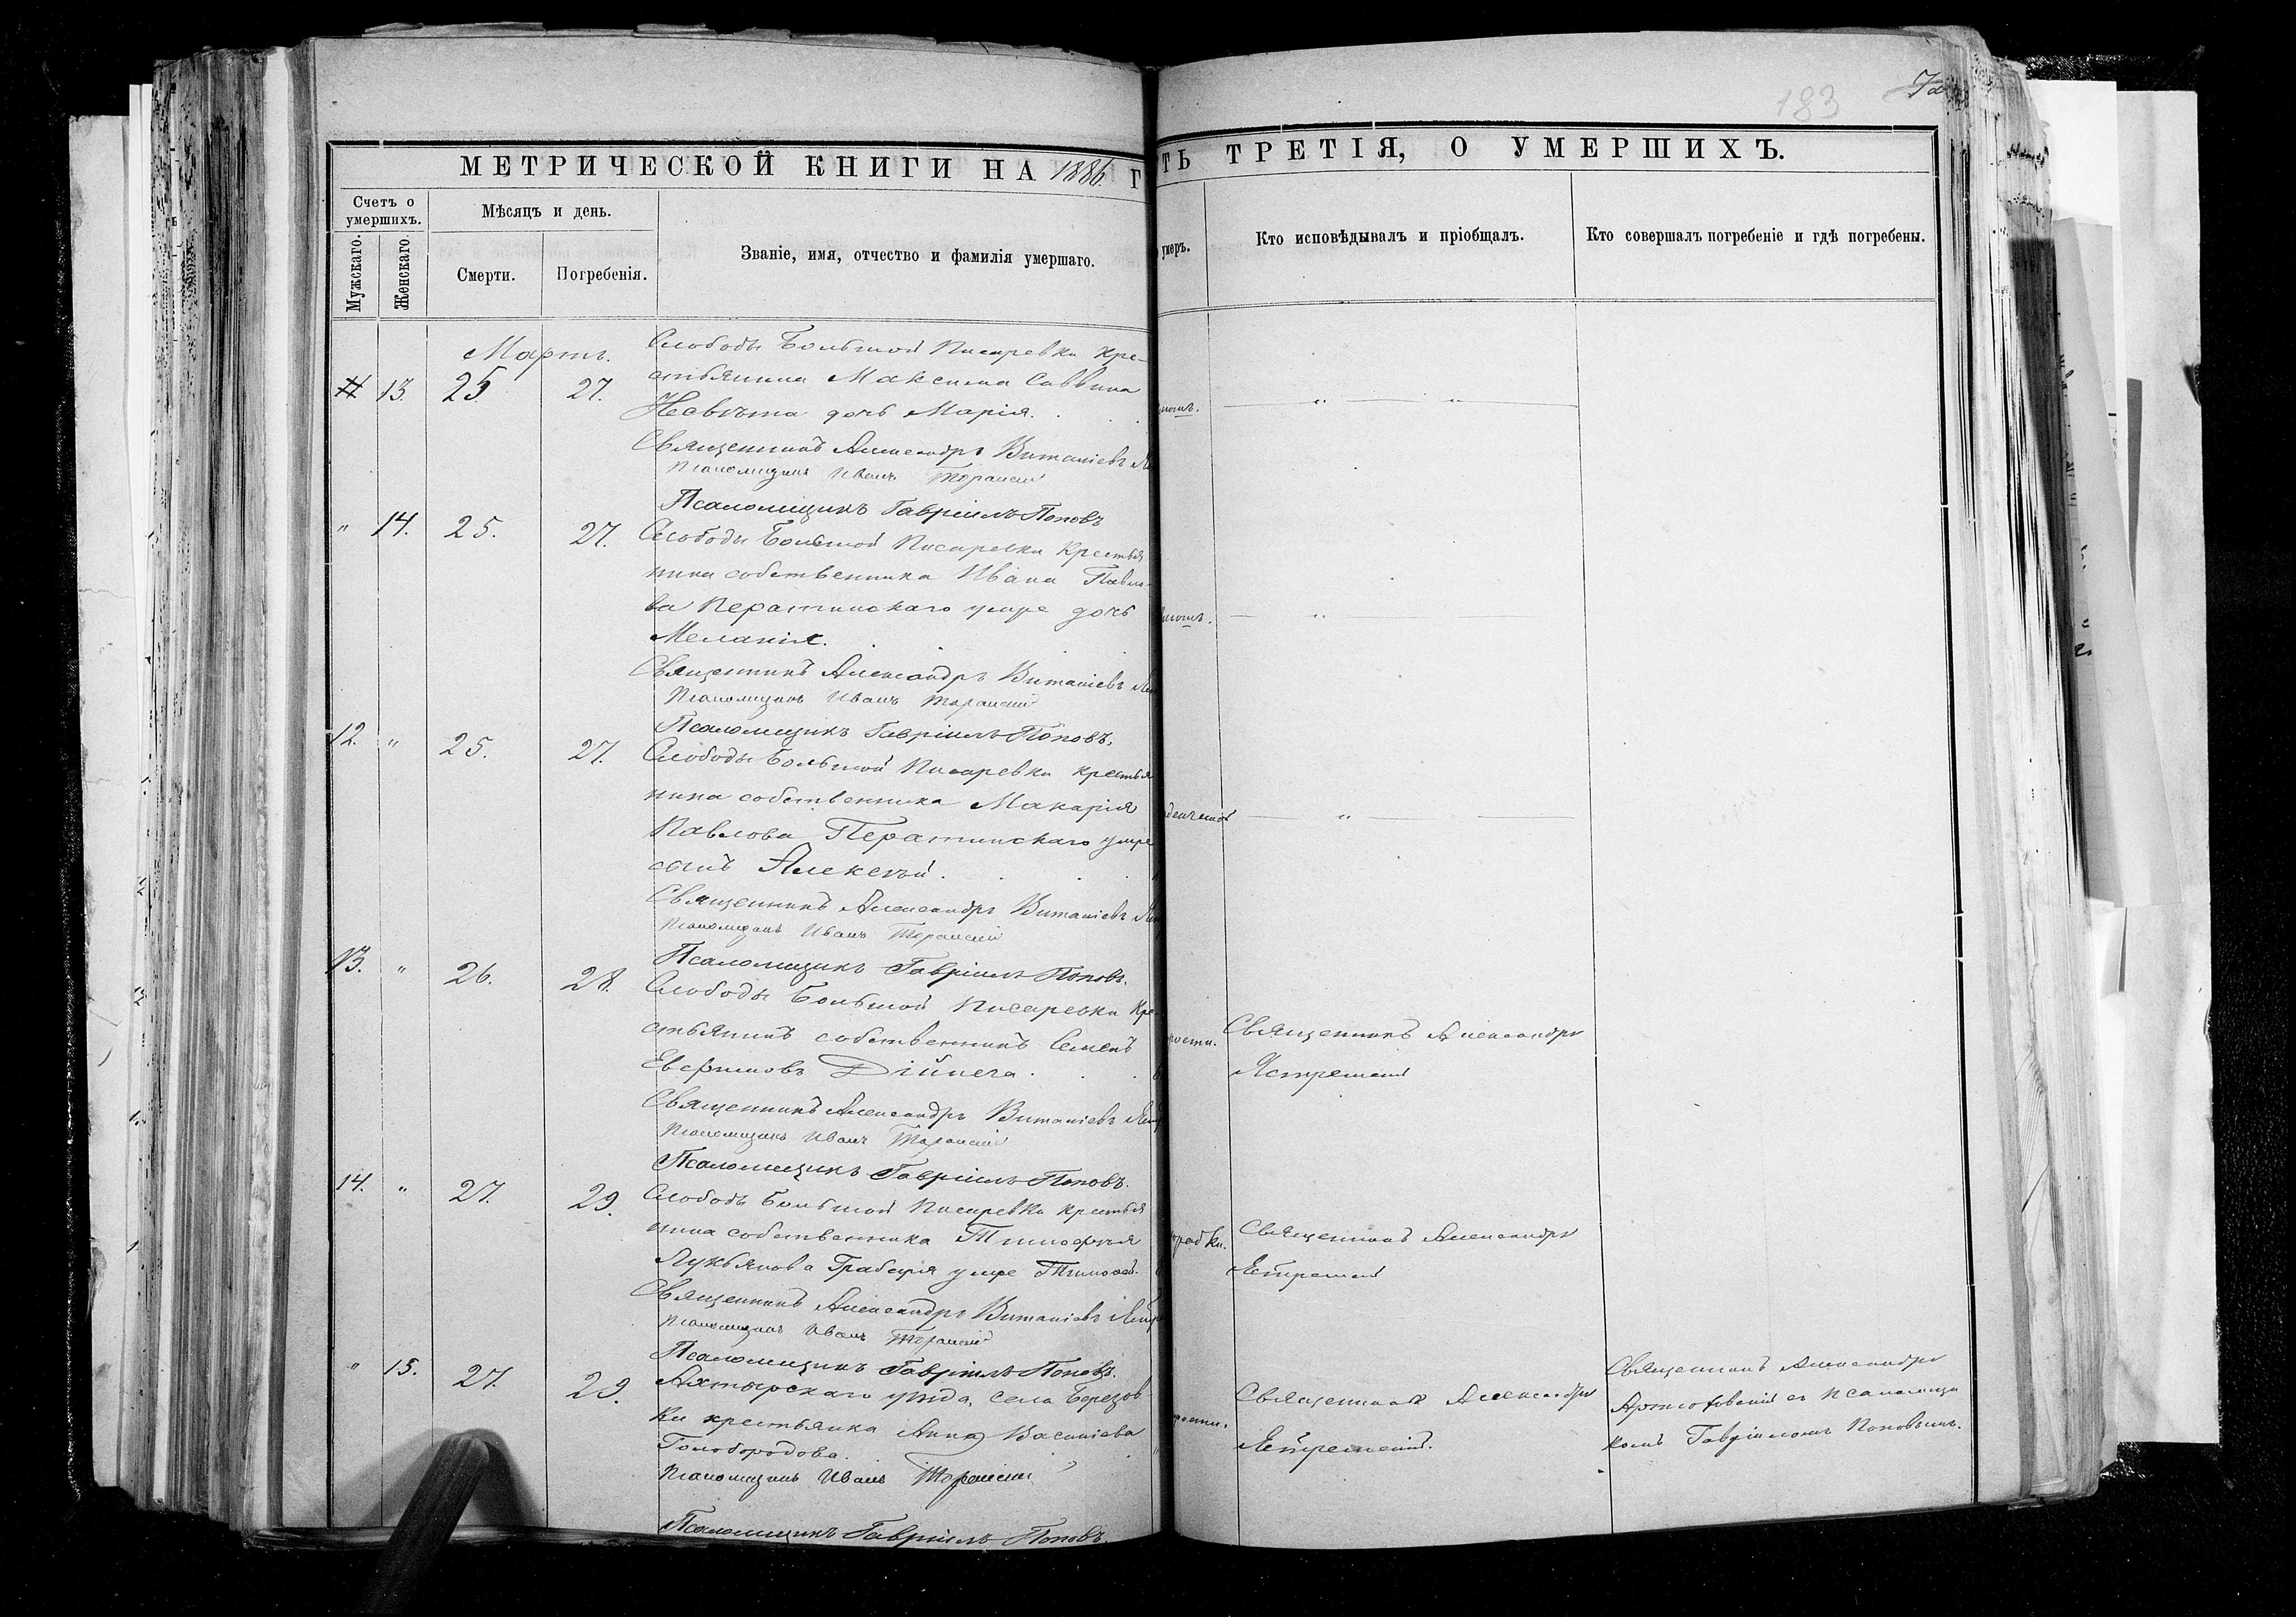 183
МЕТРИЧЕСКОЙ КНИГИ НА 1886 Г
ТЬ ТРЕТІЯ, О УМЕРШИХЪ.
Счетъ о умершихъ.
Мужскаго.
Женскаго.
Мѣсяцъ и день.
Смерти.
Погребенія.
Званіе, имя, отчество и фамилія умершаго.
умеръ.
Кто исповѣдывалъ и пріобщалъ.
Кто совершалъ погребеніе и гдѣ погребены.
Мартъ.
13. 25 27.
Слободы Большой Писаревки кре-
стьянина Максима Саввина
дочь Марія.
Священникъ Александръ Виталіевъ
Псаломщикъ Иванъ
Псаломщикъ Гавріилъ Поповъ
" 14. 25. 27.
Слободы Большой Писаревки Крестья
нина собственника Ивана Павло-
ва Ператинскаго умре дочь
Меланія.
Священникъ Александръ Виталіевъ
Псаломщикъ Иванъ
Псаломщикъ Гавріилъ Поповъ.
12. " 25. 27.
Слободы Большой Писаревки крестья
нина собственника Макарія
Павлова Ператинскаго умре
сынъ Алексѣй.
Священникъ Александръ Виталіевъ
Псаломщикъ Иванъ
Псаломщикъ Гавріилъ Поповъ.
13. " 26. 28.
Слободы Большой Писаревки Кре-
стьянинъ собственникъ Семенъ
Евфимовъ
Священникъ Александръ
Священникъ Александръ Виталіевъ
Псаломщикъ Иванъ
Псаломщикъ Гавріилъ Поповъ.
14. " 27. 29.
Слободы Большой Писаревки крестья
нина собственника Тимофѣя
Лукьянова Грабаря умре Тимофей.
Священникъ Александръ
Священникъ Александръ Виталіевъ
Псаломщикъ Иванъ
Псаломщикъ Гавріилъ Поповъ.
" 15. 27. 29.
Ахтырскаго уѣзда, села Березов-
ки крестьянка Анна Василіева
Голобородова.
Священникъ Александръ
Священникъ Александръ
съ псаломщи
комъ Гавріиломъ Поповымъ.
Псаломщикъ Иванъ
Псаломщикъ Гавріилъ Поповъ.